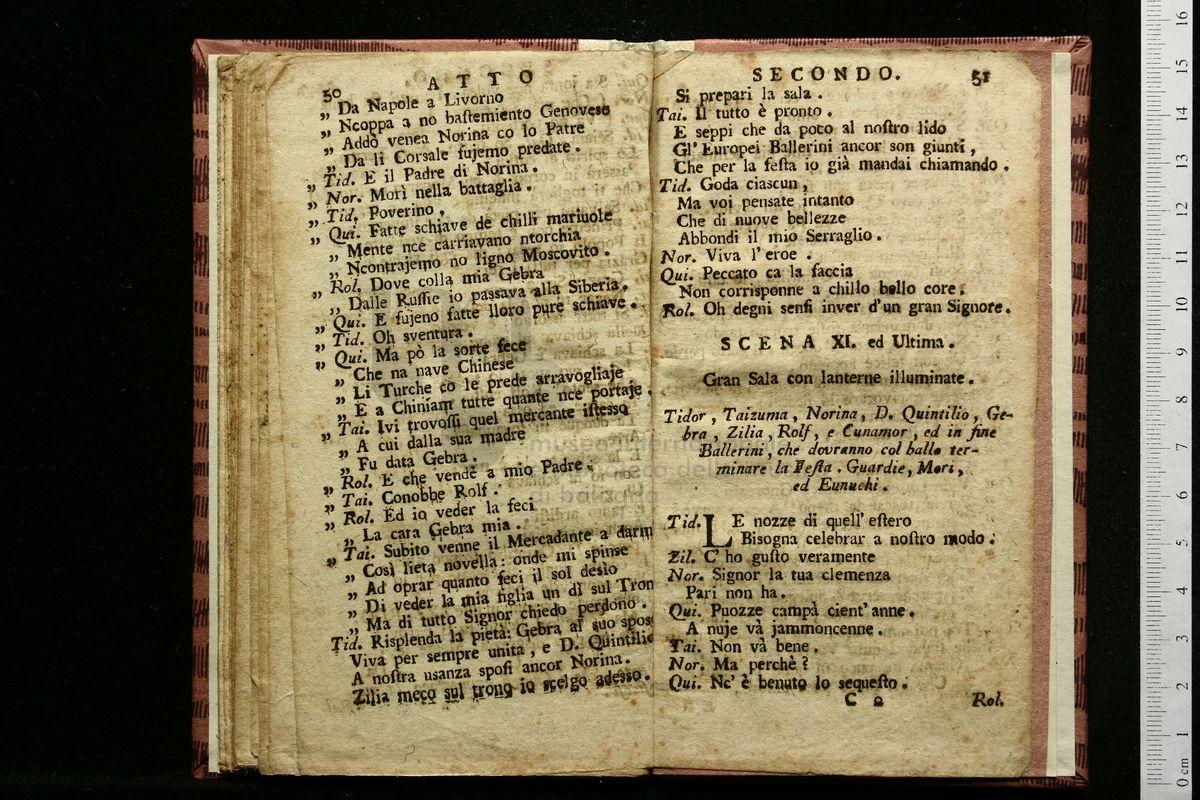 50 ATTO
„ Da Napole a Livorno
„ Ncoppa a no baſtemiento Genoveſe
„ Addò venea Norina co lo Patre
„ Da li Corſale fujemo predate.
„ Tid. E il Padre di Norina.
„ Nor. Morì nella battaglia.
„ Tid. Poverino,
„ Qui. Fatte ſchiave de chilli mariuole
„ Mente nce carriavano ntorchia
„ Ncontrajemo no ligno Moſcovito.
„ Rol. Dove colla mia Gebra
„ Dalle Ruſſie io paſſava alla Siberia.
„ Qui. E fujeno fatte lloro pure ſchiave.
„ Tid. Oh sventura.
„ Qui. Ma pò la sorte fece
„ Che na nave Chineſe
„ Li Turche co le prede arravogliaje
„ E a Chiniam tutte quante nce portaje.
„ Tai. Ivi trovoſſi quel mercante iſteſſo
„ A cui dalla sua madre
„ Fu data Gebra.
„ Rol. E che vendè a mio Padre.
„ Tai. Conobbe Rolf.
„ Rol. Ed io veder la feci
„ La cara Gebra mia.
„ Tai. Subito venne il Mercadante a darm
„ Così lieta novella: onde mi spinse
„ Ad oprar quanto feci il sol desìo
„ Di veder la mia figlia un dì sul Tron
„ Ma di tutto Signor chiedo perdono.
Tid. Risplenda la pietà: Gebra al suo spos
Viva per sempre unita, e D. Quintilio
A noſtra usanza spoſi ancor Norina.
Zilia meco sul trono io scelgo adesso.
SECONDO. 51
Si prepari la sala.
Tai. Il tutto è pronto.
E seppi che da poco al noſtro lido
Gl' Europei Ballerini ancor son giunti,
Che per la feſta io già mandai chiamando.
Tid. Goda ciascun,
Ma voi pensate intanto
Che di nuove bellezze
Abbondi il mio Serraglio.
Nor. Viva l' eroe.
Qui. Peccato ca la faccia
Non corrisponne a chillo bello core.
Rol. Oh degni senſi inver d'un gran Signore.
SCENA XI. ed Ultima.
Gran Sala con lanterne illuminate.
Tidor, Taizuma, Norina, D. Quintilio, Ge-
bra, Zilia, Rolf, e Cunamor, ed in fine
Ballerini, che dovranno col ballo ter-
minare la Feſta. Guardie, Mori,
ed Eunuchi.
Tid. LE nozze di quell' eſtero
Bisogna celebrar a noſtro modo.
Zil. C' ho guſto veramente
Nor. Signor la tua clemenza
Pari non ha.
Qui. Puozze campà cient' anne.
A nuje và jammoncenne.
Tai. Non và bene.
Nor. Ma perchè?
Qui. Nc' è benuto lo sequeſto.
C 2 Rol.